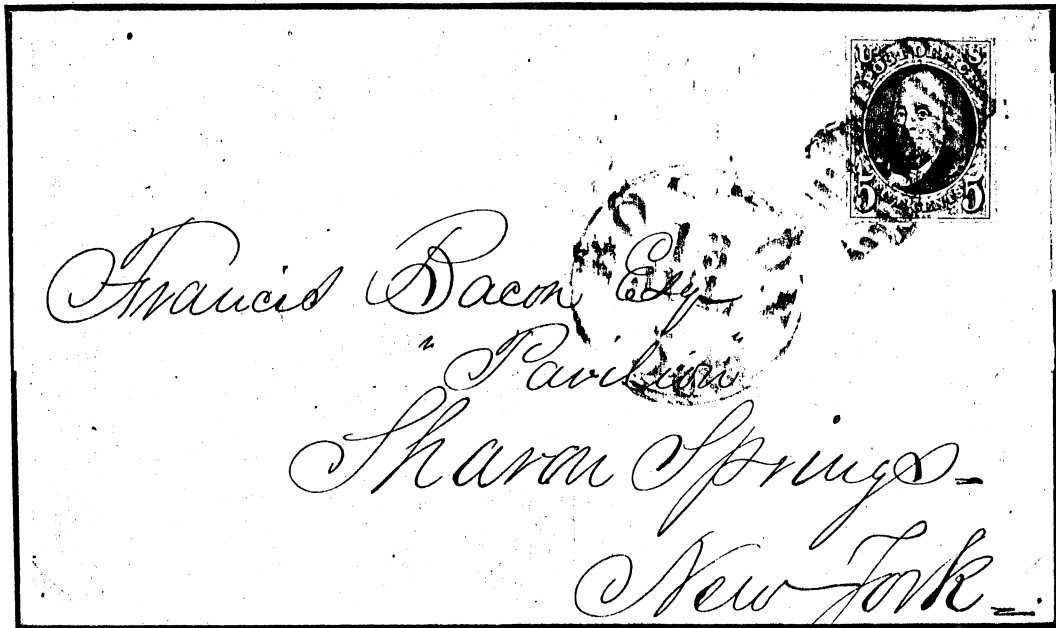 U S
POST OFFICE
5 FIVE CENTS 5
Francis Bacon Esq
"Pavilion"
Sharon Springs
New York